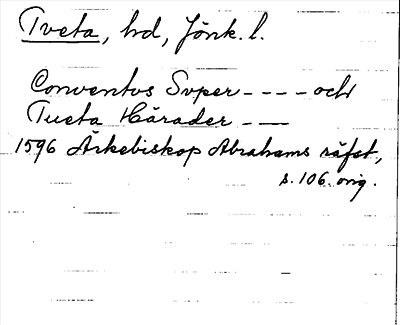 Tveta, hd, Jönk. l.
Conventus Super - - - - och
Tueta Härader - - -
1596 Ärkebiskop Abrahams räfst,
s. 106. orig.